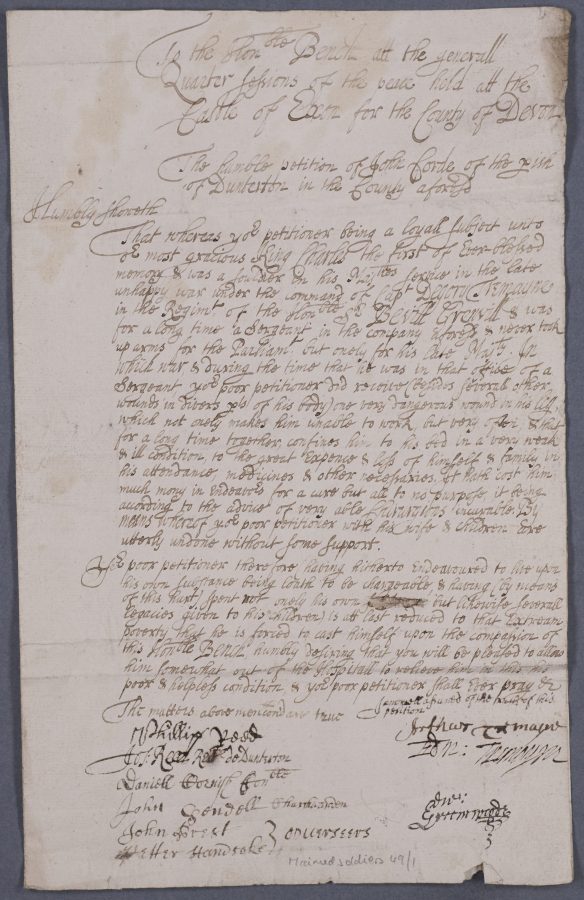 To the Hon:ble Bench att the generall
Quarter sessions of the peace held att the
Castle of Exon for the County of Devon
The humble petition of John Corde of the pish
of Dunterton in the County aforesd
Humbly sheweth
That whereas yor petitioner being a loyall subject unto
or most gracious King Charles the first of Ever blessed
memory & was a souldier in his Maties service in the late
unhappy war under the command of Capt Degory Tremayne
in the Regimt of the Honoble Sr Bevill Grenvill & was
for a long time a Sergeant in the company aforesd & never took
up arms for the Parliamt but onely for his late Maty. In
which war & during the time that he was in that office of a
Sergeant yor poor petitioner did receive (besides severall other
wounds in divers pts of his body) one very dangerous wound in his
which not onely makes him unable to work but very often & that
for a long time together confines him to his bed in a very weak
& ill condition, to the great Expence & loss of himself & family in
his attendance medicines & other necessaries. It hath cost him
much mony in Endeavors for a cure but all to no purpose, it being
according to the advice of very able incurable. By
means whereof yor poor petitioner with his wife & children are
utterly undone without some support.
Yor poor petitioner therefore having hitherto Endeavoured to live upon
his own substance being loath to be chargeable, & having (by means
of this hurt) spent not onely his own but likewise severall
legacies given to his children) is att last reduced to that Extream
poverty that he is forced to cast himself upon the compassion of
this Honoble Bench, humbly desiring that you will be pleased to allow
him somewhat out of the Hospitall to relieve him in this his
poor & helpless condition & yor poor petitioner shall Ever pray &c
The matters above mentiond are true
I am well assured of the truth of this
petition
Phillip
Arthur Tremayne
Jos: Rectr de Dunterton
Edm: Tremayne
Daniell Cornish Conble
John Churchwarden
Edw:
John
Overseers
Petter
Maimed soldiers 49/1